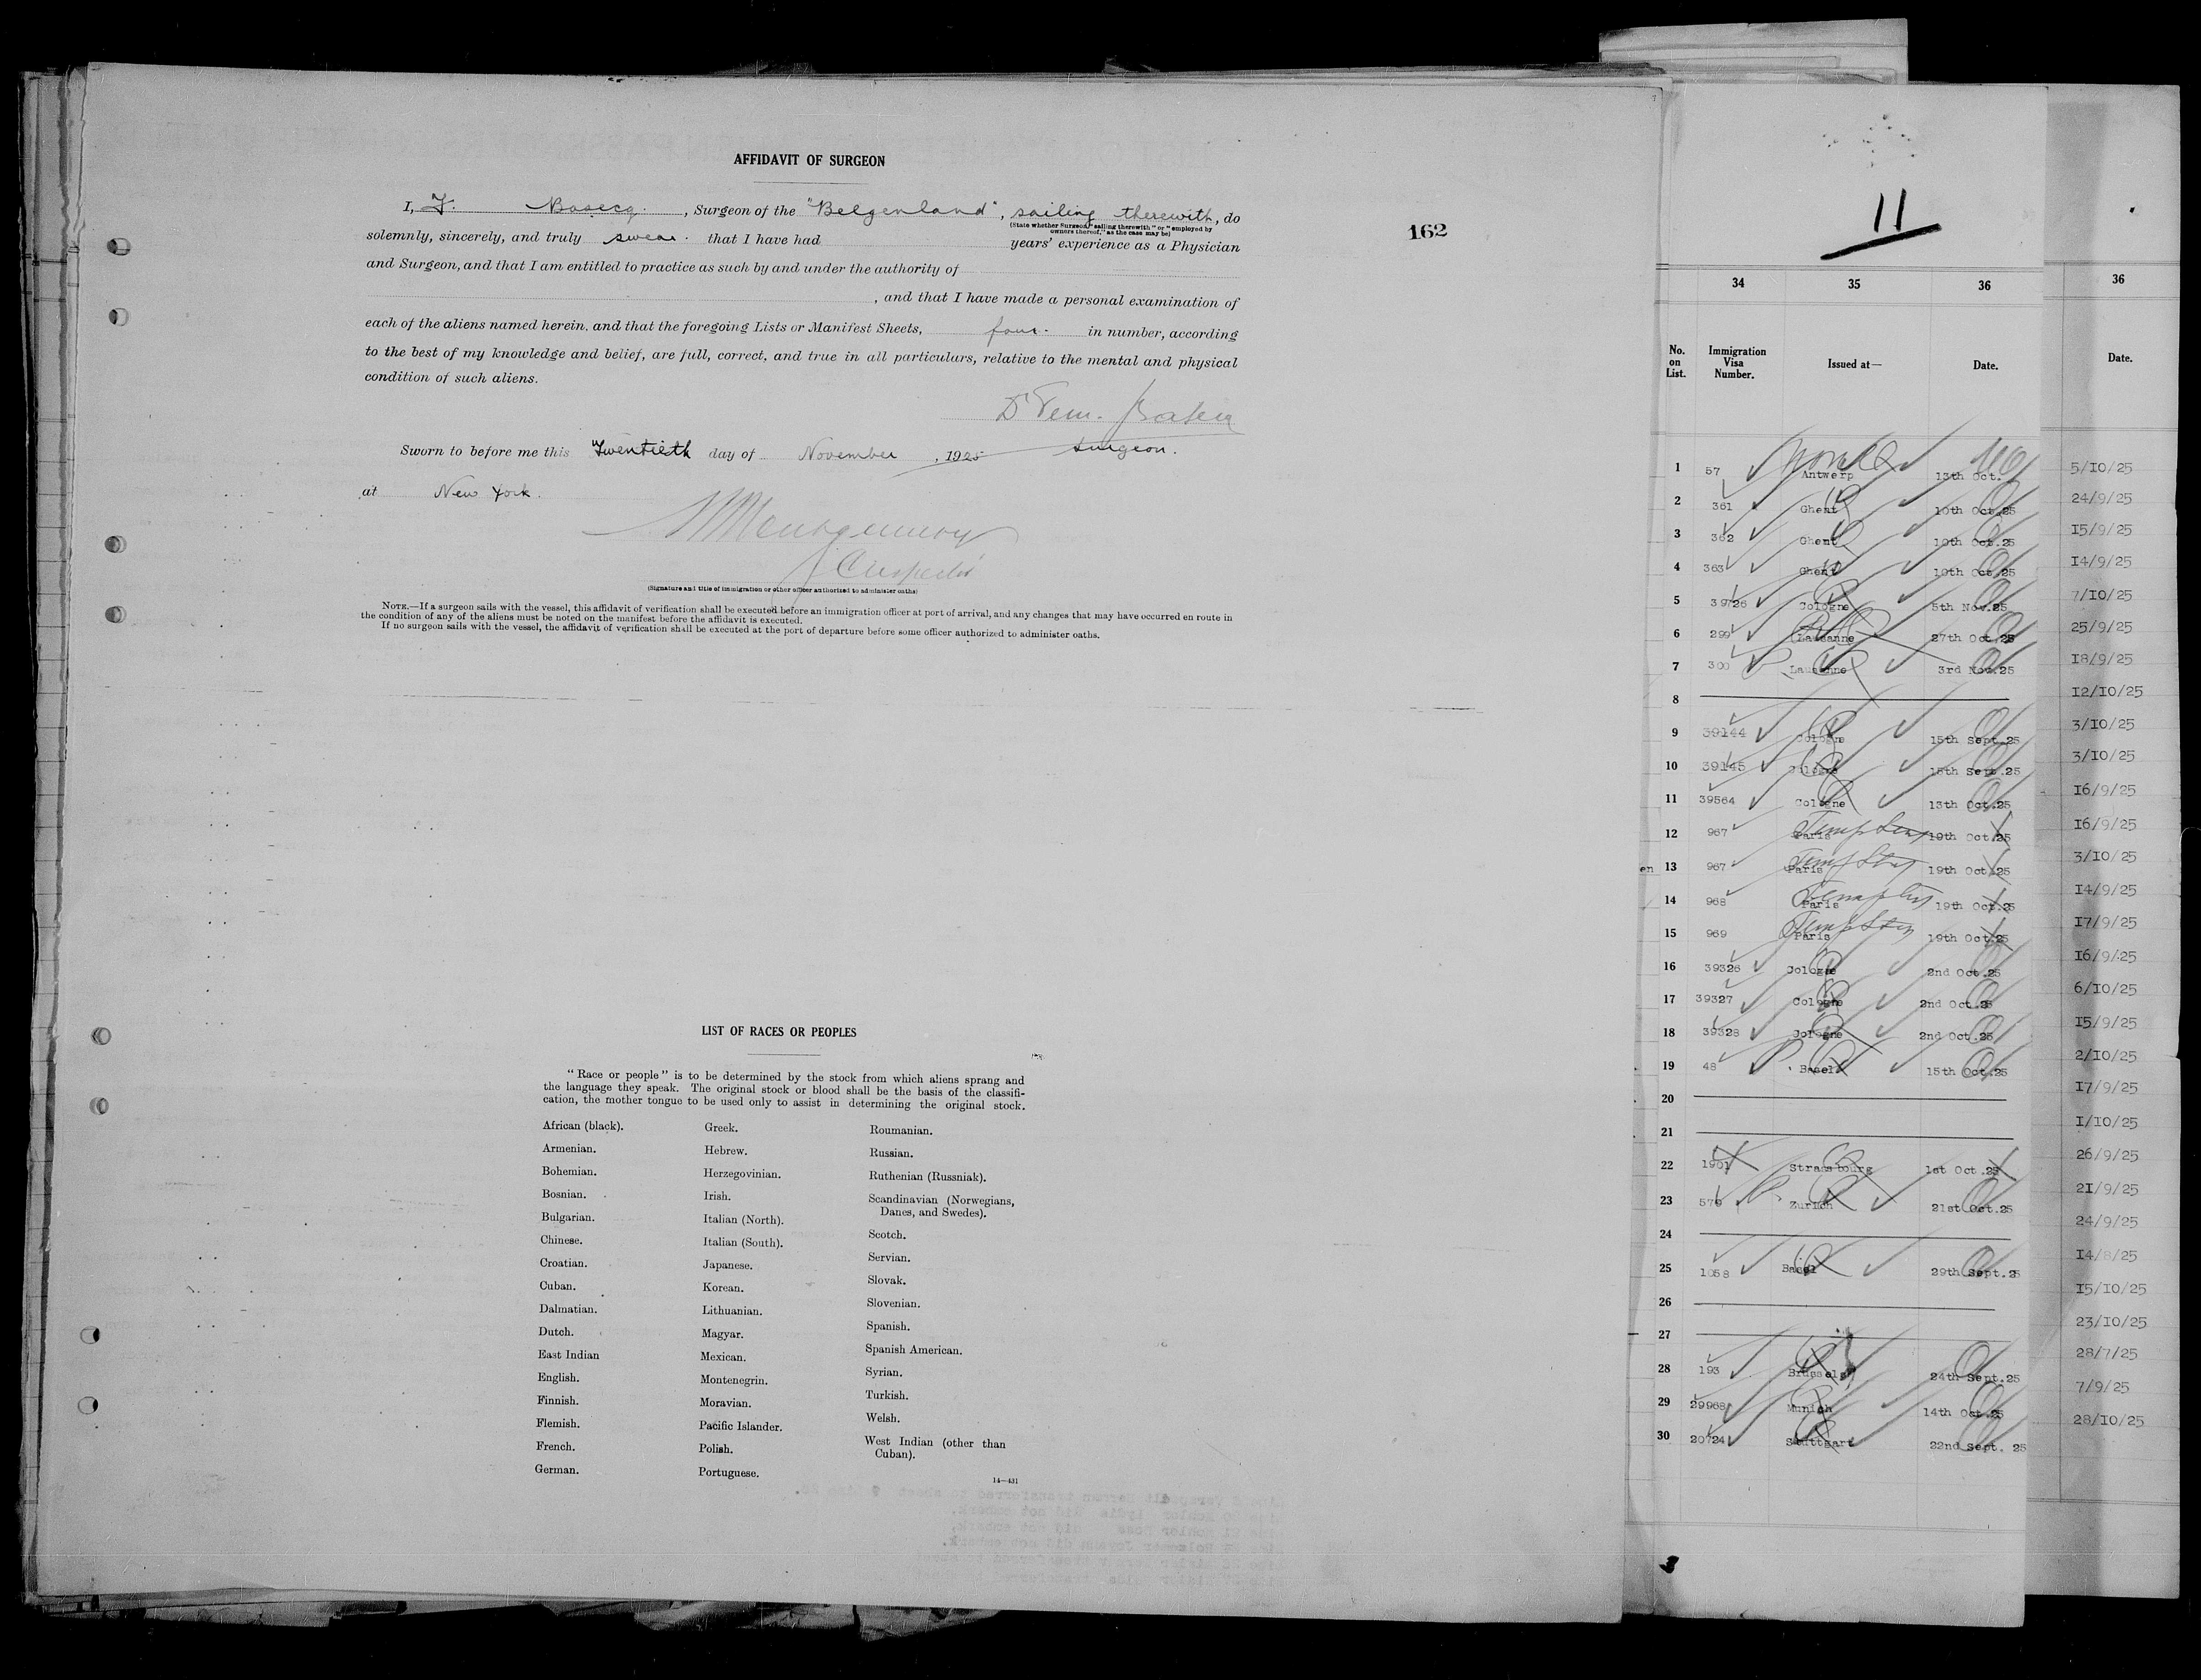 AFFIDAVIT OF SURGEON
I, F. Basecq, Surgeon of the "Belgenland", sailing therewith, do
(State whether Surgeon "sailing therewith" or "employed by
owners thereof," as the case may be)
solemnly, sincerely, and truly swear that I have had years' experience as a Physician
and Surgeon, and that I am entitled to practice as such by and under the authority of
, and that I have made a personal examination of
each of the aliens named herein, and that the foregoing Lists or Manifest Sheets, four in number, according
to the best of my knowledge and belief, are full, correct, and true in all particulars, relative to the mental and physical
condition of such aliens.
Surgeon.
Sworn to before me this Twentieth day of November, 1925
at New York.
Montgomery
Inspector
(Signature and title of immigration or other officer authorized to administer oaths)
NOTE.—If a surgeon sails with the vessel, this affidavit of verification shall be executed before an immigration officer at port of arrival, and any changes that may have occurred en route in
the condition of any of the aliens must be noted on the manifest before the affidavit is executed.
If no surgeon sails with the vessel, the affidavit of verification shall be executed at the port of departure before some officer authorized to administer oaths.
162
LIST OF RACES OR PEOPLES
"Race or people" is to be determined by the stock from which aliens sprang and
the language they speak. The original stock or blood shall be the basis of the classifi-
cation, the mother tongue to be used only to assist in determining the original stock.
African (black).
Armenian.
Bohemian.
Bosnian.
Bulgarian.
Chinese.
Croatian.
Cuban.
Dalmatian.
Dutch.
East Indian
English.
Finnish.
Flemish.
French.
German.
Greek.
Hebrew.
Herzegovinian.
Irish.
Italian (North).
Italian (South).
Japanese.
Korean.
Lithuanian.
Magyar.
Mexican.
Montenegrin.
Moravian.
Pacific Islander.
Polish.
Portuguese.
Roumanian.
Russian.
Ruthenian (Russniak).
Scandinavian (Norwegians,
Danes, and Swedes).
Scotch.
Servian.
Slovak.
Slovenian.
Spanish.
Spanish American.
Syrian.
Turkish.
Welsh.
West Indian (other than
Cuban).
14—431
11
34 35 36
No. on List. Immigration Visa Number. Issued at— Date.
1 57 Antwerp 13th Oct.
2 361 Ghent 10th Oct.25
3 362 Ghent 10th Oct.25
4 363 Ghent 10th Oct.25
5 39726 Cologne 5th Nov.25
6 299 Lausanne 27th Oct.25
7 300 Lausanne 3rd Nov.25
8
9 39144 Cologne 15th Sept.25
10 39145 Cologne 15th Sept.25
11 39564 Cologne 13th Oct.25
12 967 Paris 19th Oct.25
en 13 967 Paris 19th Oct.25
14 968 Paris 19th Oct.25
15 969 Paris 19th Oct.25
16 39326 Cologne 2nd Oct.25
17 39327 Cologne 2nd Oct.25
18 39328 Cologne 2nd Oct.25
19 48 Basel 15th Oct.25
20
21
22 1901 Strassbourg 1st Oct.25
23 579 Zurich 21st Oct.25
24
25 1058 Basel 29th Sept.25
26
27
28 193 Brussels 24th Sept.25
29 29968 Munich 14th Oct.25
30 20724 Stuttgart 22nd Sept. 25
36
Date.
5/10/25
24/9/25
15/9/25
14/9/25
7/10/25
25/9/25
18/9/25
12/10/25
3/10/25
3/10/25
16/9/25
16/9/25
3/10/25
14/9/25
17/9/25
16/9/25
6/10/25
15/9/25
2/10/25
17/9/25
1/10/25
26/9/25
21/9/25
24/9/25
14/8/25
15/10/25
23/10/25
28/7/25
7/9/25
28/10/25